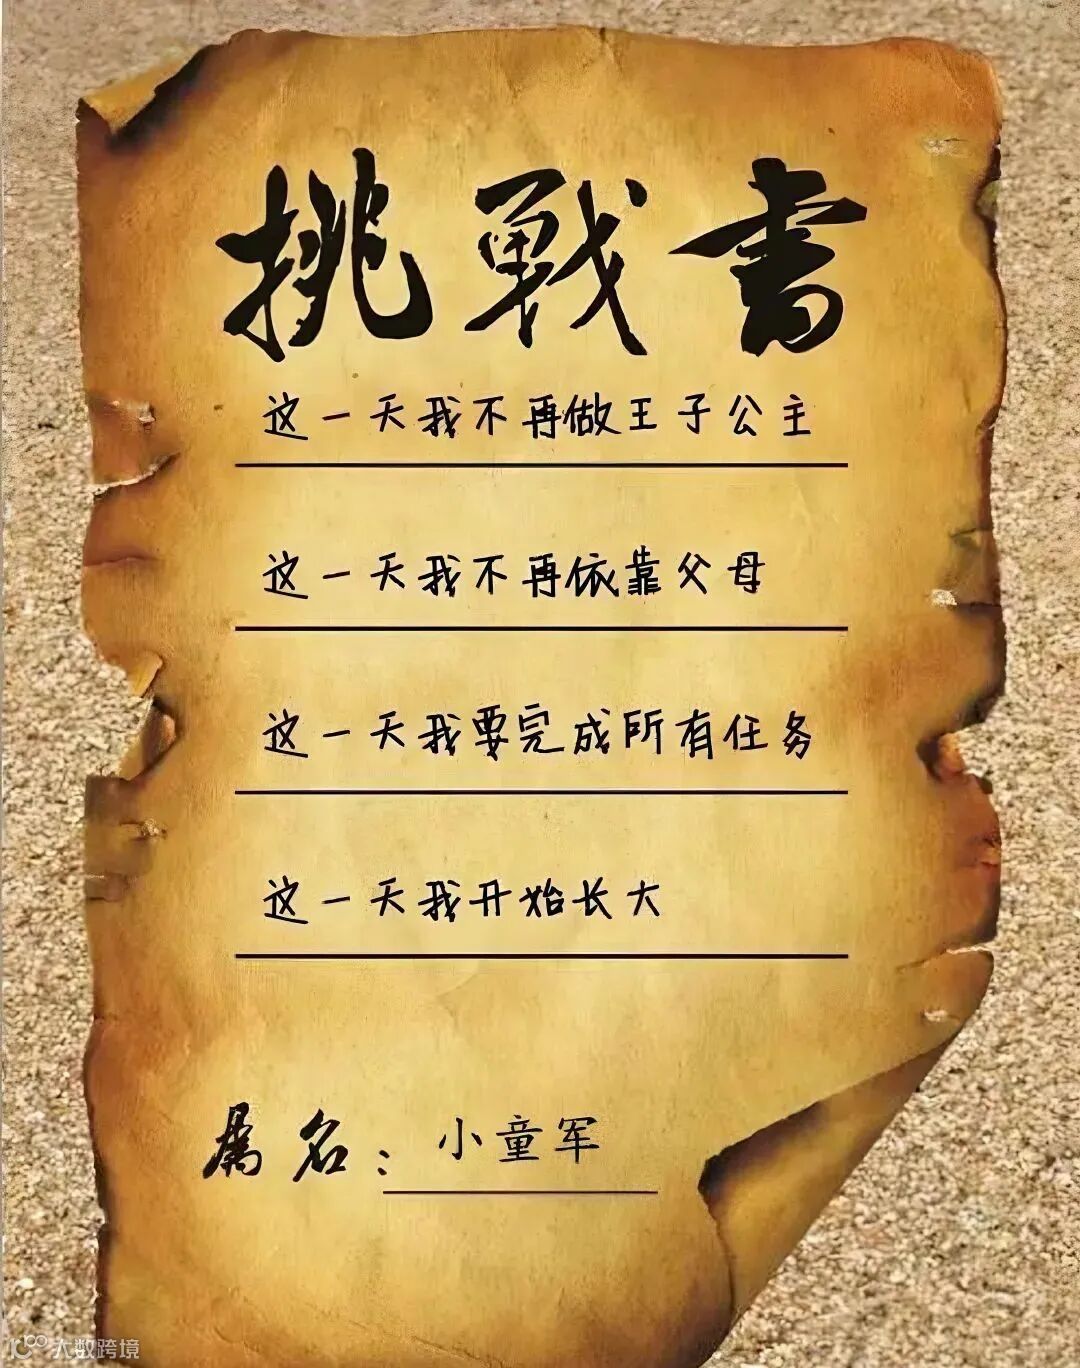 挑戰書
这一天我不再做王子公主
这一天我不再依靠父母
这一天我要完成所有任务
这一天我开始长大
属名：小童军
大数跨境